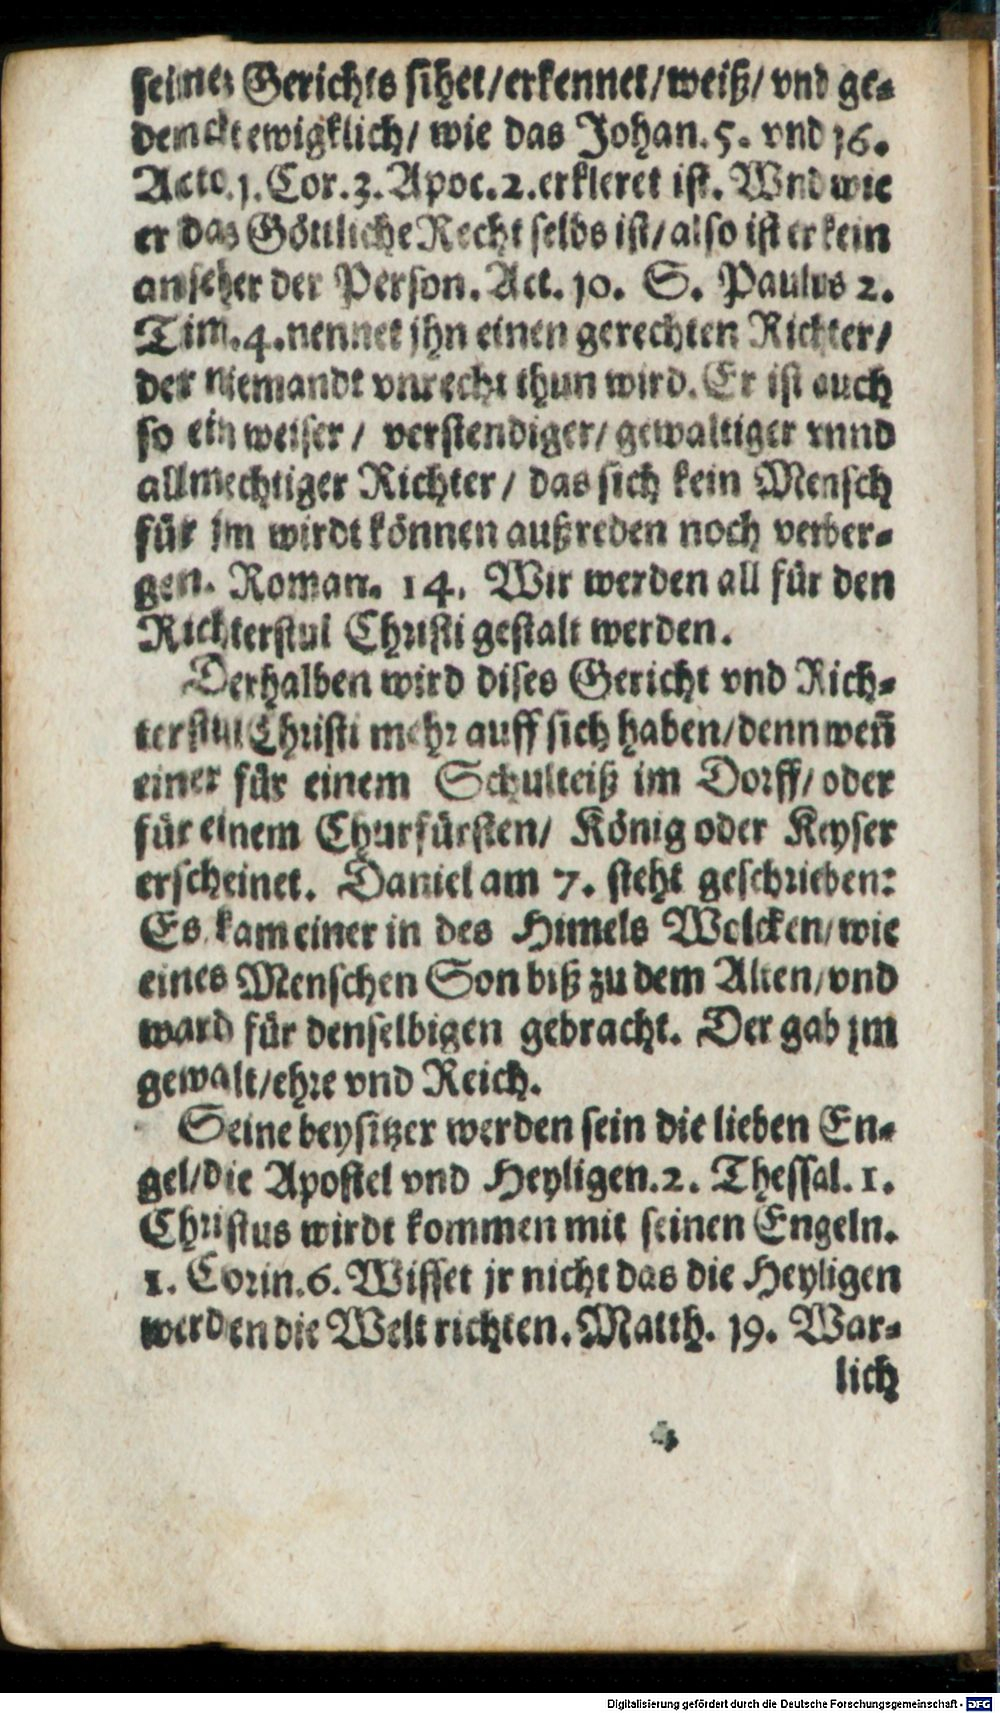 seines Gerichts sihet/erkennet/weiß/ vnd ge-
denckt ewigklich/ wie das Johan. 5. vnd 16.
Acto. 1. Cor. 3. Apoc. 2. erkleret ist. Vnd wie
er das Göttliche Recht selbs ist/ also ist er kein
anseher der Person. Act. 10. S. Paulus 2.
Tim. 4. nennet jhn einen gerechten Richter/
der niemandt vnrecht thun wird. Er ist auch
so ein weiser/ verstendiger/ gewaltiger vnnd
allmechtiger Richter/ das sich kein Mensch
für jm wirdt können außreden noch verber-
gen. Roman. 14. Wir werden all für den
Richterstul Christi gestalt werden.
Derhalben wird dises Gericht vnd Rich-
terstul Christi mehr auff sich haben/ denn weñ
einer für einem Schulteiß im Dorff/ oder
für einem Churfürsten/ König oder Keyser
erscheinet. Daniel am 7. steht geschrieben:
Es kam einer in des Himels Wolcken/ wie
eines Menschen Son biß zu dem Alten/ vnd
ward für denselbigen gebracht. Der gab jm
gewalt/ ehre vnd Reich.
Seine beysitzer werden sein die lieben En-
gel/ die Apostel vnd Heyligen. 2. Thessal. 1.
Christus wirdt kommen mit seinen Engeln.
1. Corin. 6. Wisset jr nicht das die Heyligen
werden die Welt richten. Matth. 19. War-
lich
Digitalisierung gefördert durch die Deutsche Forschungsgemeinschaft - DFG